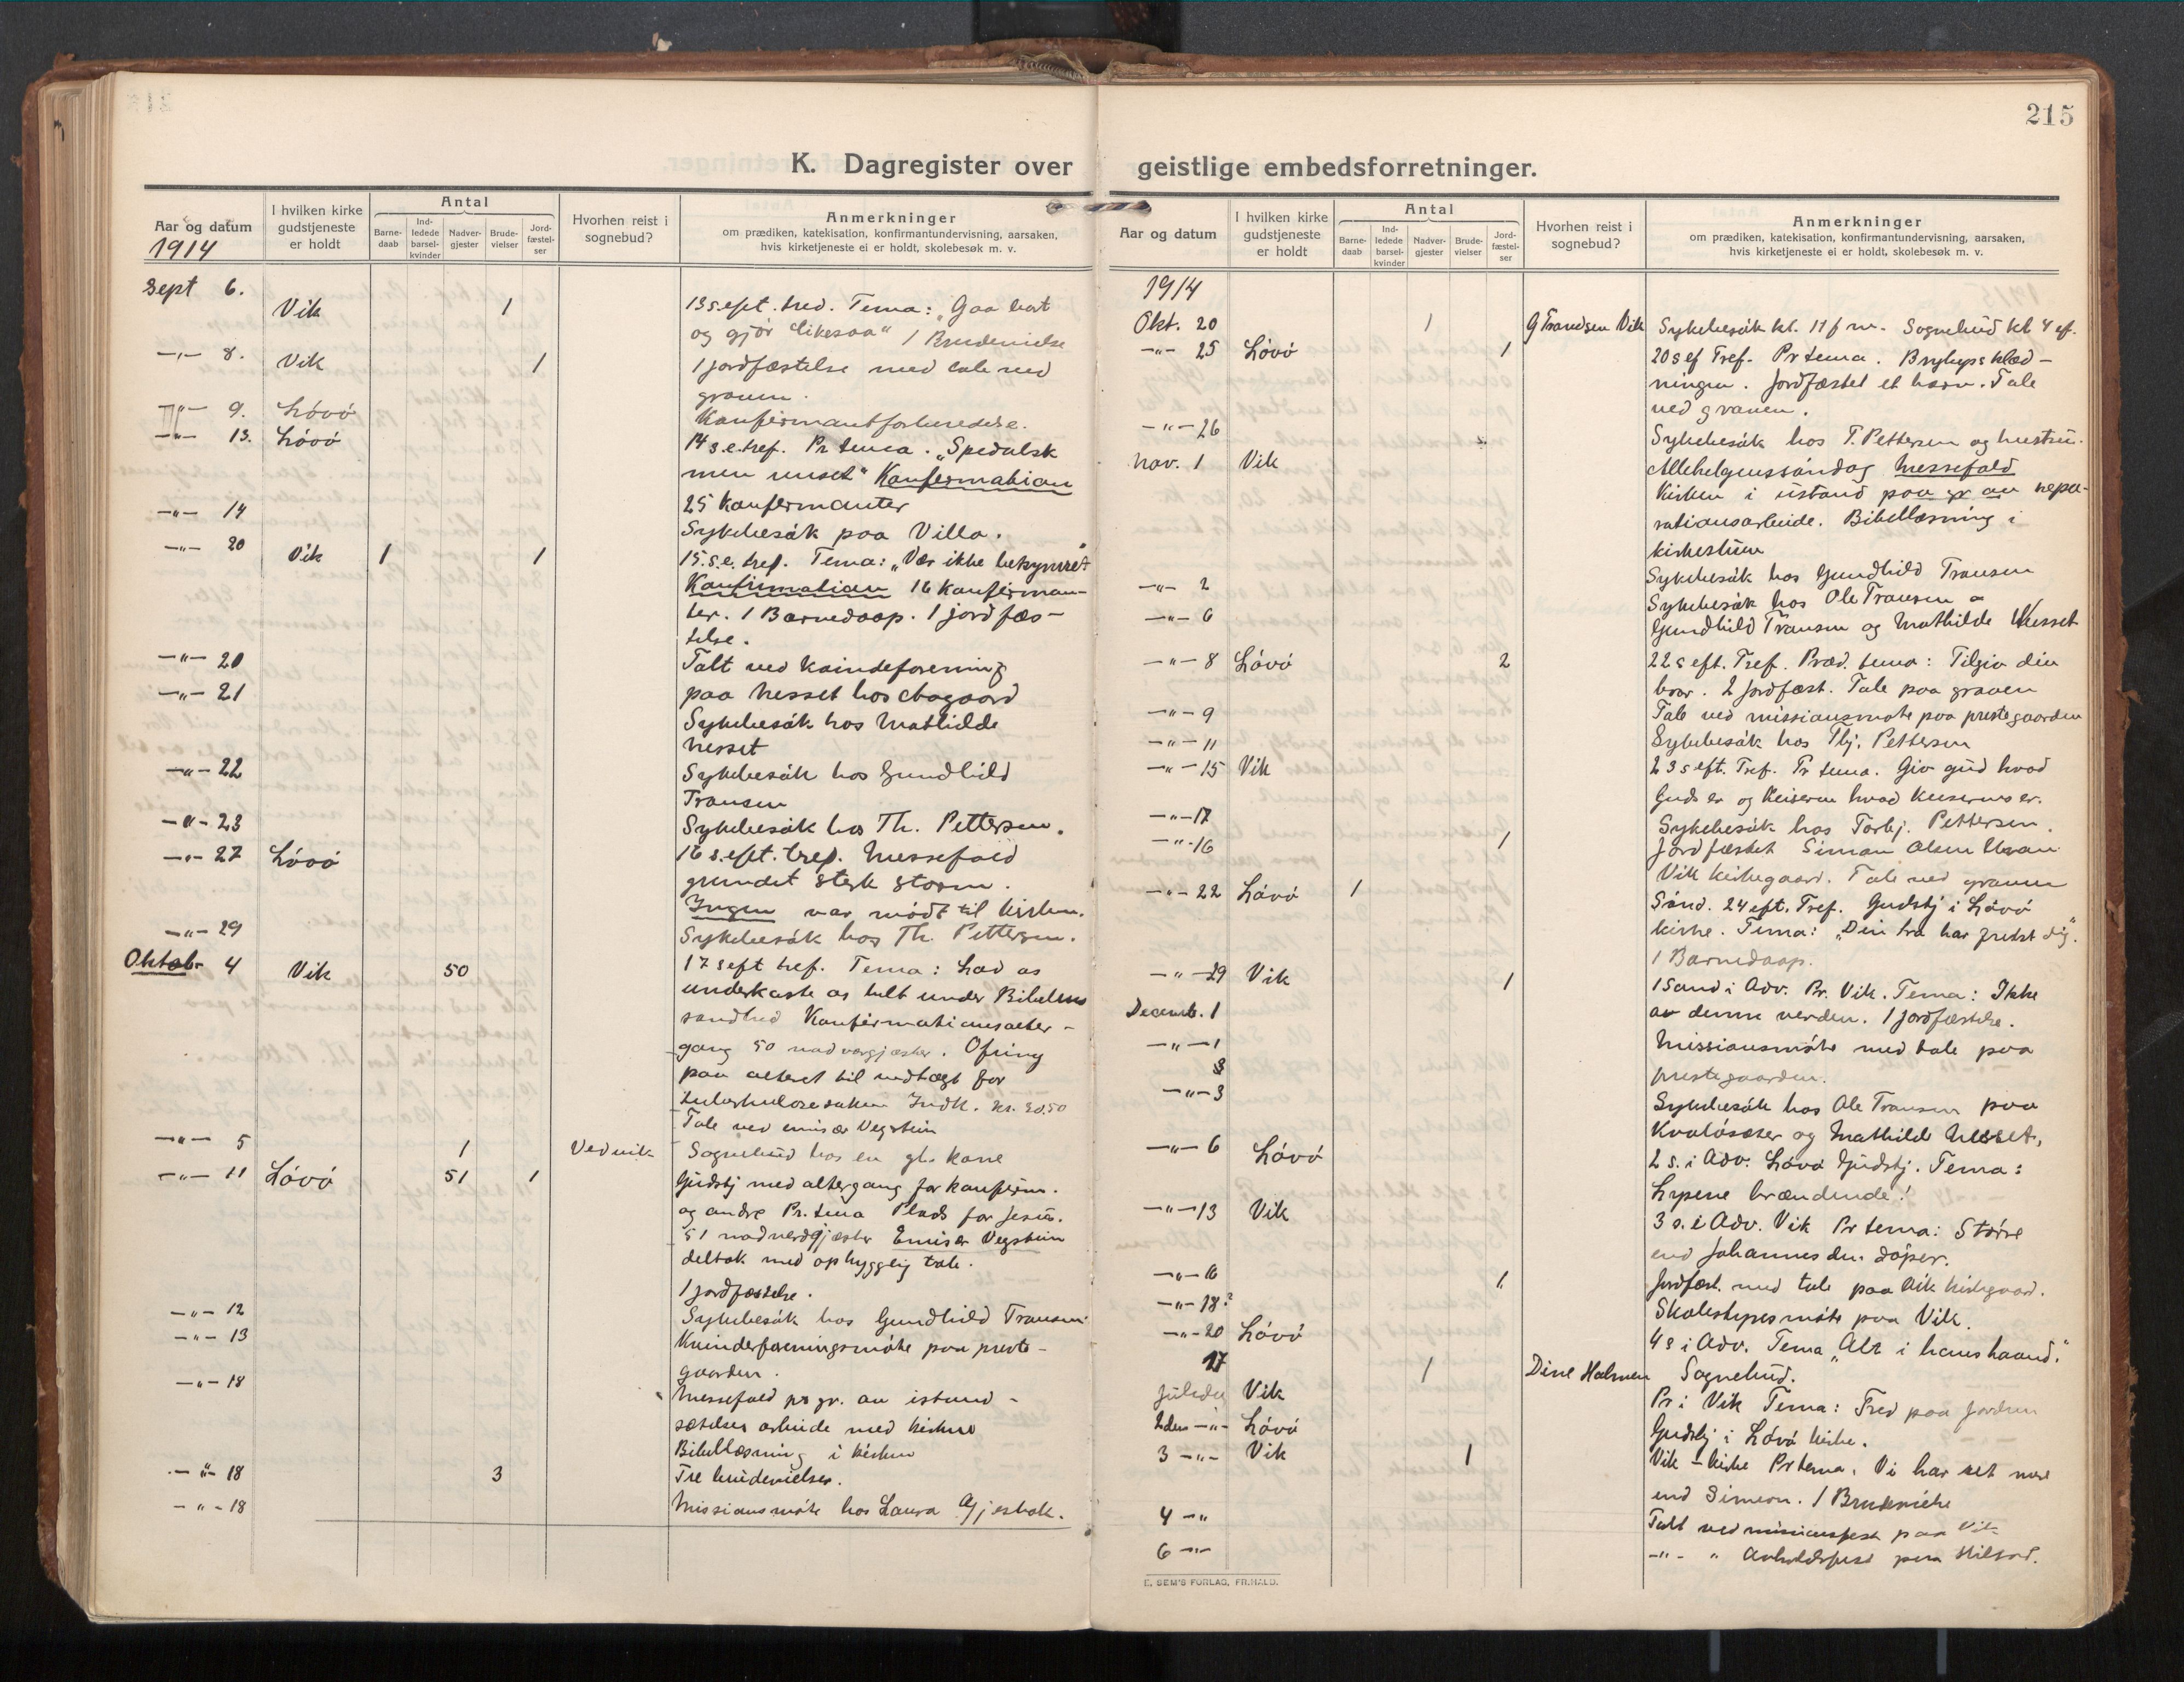 215
K. Dagregister over geistlige embedsforretninger.
Aar og datum
I hvilken kirke gudstjeneste er holdt
Antal
Barne-daab
Ind-ledede barsel-kvinder
Nadver-gjester
Brude-vielser
Jord-fæstel-ser
Hvorhen reist i sognebud?
Anmerkninger
om prædiken, katekisation, konfirmantundervisning, aarsaken, hvis kirketjeneste ei er holdt, skolebesøk m. v.
1914
Sept 6. Vik 1 13 s. eft. tred. Tema: "Gaa bort
og gjör likesaa" 1 Brudevielse
-"- 8. Vik 1 1 jordfæstelse med tale ved
graven.
-"- 9. Lövö Konfirmantforberedelse.
-"- 13. Lövö 14 s. e. tref. Pr tema. "Spedalsk
men renset" Konfirmation
25 konfirmanter
-"- 14 Sykebesök paa Villa.
-"- 20 Vik 1 1 15. s. e. tref. Tema: "Vær ikke bekymret
Konfirmation 16 konfirman-
ter. 1 Barnedaap. 1 jordfæs-
telse.
-"- 20 Talt ved kvindeforening
-"- 21 paa Nesset hos
Sykebesök hos Mathilde
Nesset
-"- 22 Sykebesök hos Gundhild
Transen
-"- 23 Sykebesök hos Th. Pettersen.
-"- 27 Lövö 16 s. eft. tref. Messefald
grundet sterk storm.
Ingen var mödt til kirken.
-"- 29 Sykebesök hos Th. Pettersen.
Oktobr 4 Vik 50 17 s eft tref. Tema: Lad os
underkaste os helt under Bibelens
sandhed Konfirmationsalter-
gang 50 nadvergjæster. Ofring
paa alteret til indtægt for
tuberkulosesaken Indk. kr. 30.50
Tale ved emisær Vegstein
-"- 5 1 Vedvik Sognebud hos en gl. kone
-"- 11 Lövö 51 1 Gudstj med altergang for konfirm.
og andre Pr. tema Plads for Jesus.
51 nadverdgjæster Emisær Vegstein
deltok med opbyggelig tale.
1 jordfæstelse.
-"- 12 Sykebesök hos Gundhild Transen
-"- 13 Kvindeforeningsmöte paa preste-
gaarden.
-"- 18 Messefald pr gr. av istand-
sættelses arbeide med kirken
Bibellæsning i kirken
-"- 18 3 Tre brudevielser.
-"- 18 Missionsmöte hos Laura Gjesbak.
Aar og datum
I hvilken kirke gudstjeneste er holdt
Antal
Barne-daab
Ind-ledede barsel-kvinder
Nadver-gjester
Brude-vielser
Jord-fæstel-ser
Hvorhen reist i sognebud?
Anmerkninger
om prædiken, katekisation, konfirmantundervisning, aarsaken, hvis kirketjeneste ei er holdt, skolebesøk m. v.
1914
Okt. 20 1 G Trandsen Vik Sykebesök kl. 11 f m. Sognebud kl 4 ef.
-"- 25 Lövö 1 20 s ef Tref. Pr tema. Bryllups klæd-
ningen. Jordfæstet et barn. Tale
ved graven.
-"- 26 Sykebesök hos T. Pettersen og hustru.
Nov. 1 Vik Allehelgenssöndag Messefald
Kirken i ustand paa gr av repa-
rationsarbeide. Bibellæsning i
kirkestuen
-"- 2 Sykebesök hos Gundhild Transen
-"- 6 Sykebesök hos Ole Transen
Gundhild Transen og Mathilde Nesset
-"- 8 Lövö 2 22 s eft. Tref. Præd. tema: Tilgiv din
bror. 2 jordfæst. Tale paa graven
-"- 9 Tale ved missionsmöte paa prestegaarden
-"- 11 Sykebesök hos Tbj. Pettersen
-"- 15 Vik 23 s eft. Tref. Pr tema. Giv gud hvad
Guds er og keiseren hvad keiserens er.
-"- 17 Sykebesök hos Torbj. Pettersen.
-"- 16 1 Jordfæstet Simon Olsen
Vik kirkegaard. Tale ved graven
-"- 22 Lövö 1 Sönd. 24 eft. Tref. Gudstj i Lövö
kirke. Tema: "Din tro har frelst dig".
1 Barnedaap.
-"- 29 Vik 1 1 sönd i Adv. Pr. Vik. Tema: Ikke
av denne verden. 1 jordfæstelse.
Decemb. 1 Missionsmöte med tale paa
-"- 1 prestegaarden.
3
-"- 3 Sykebesök hos Ole Transen paa
Kvalösæter og Mathilde Nesset,
-"- 6 Lövö 2 s. i Adv. Lövö Gudstj. Tema:
Lysene brændende!
-"- 13 Vik 3 s. i Adv. Vik Pr tema: Större
end Johannes den döper.
-"- 16 1 Jordfæst. med tale paa Vik kirkegaard.
-"- 18? Skolestyresmöte paa Vik.
-"- 20 Lövö 4 s i Adv. Tema "Alt i hans haand."
17 1 Dine Holmen Sognebud.
Juledag Vik Pr i Vik Tema: Fred paa jorden
2den -"- Lövö Gudstj i Lövö kirke.
3 -"- Vik 1 Vik-kirke Pr tema. Vi har set mere
end Simeon. 1 Brudevielse
4 -"- Talt ved missionsfest paa Vik
6 -"- -"- " Avholdsfest paa
E. SEM'S FORLAG, FR.HALD.